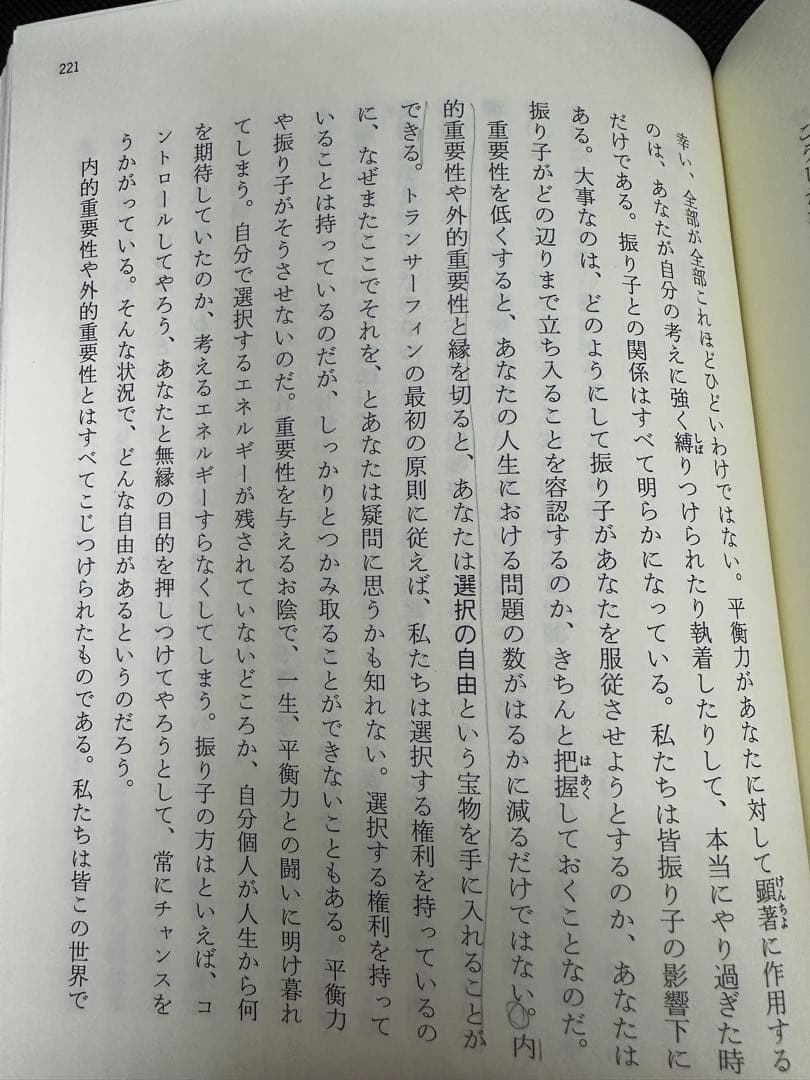 221
幸い、全部が全部これほどひどいわけではない。平衡力があなたに対して顕著に作用する
のは、あなたが自分の考えに強く縛りつけられたり執着したりして、本当にやり過ぎた時
だけである。振り子との関係はすべて明らかになっている。私たちは皆振り子の影響下に
ある。大事なのは、どのようにして振り子があなたを服従させようとするのか、あなたは
振り子がどの辺りまで立ち入ることを容認するのか、きちんと把握しておくことなのだ。
重要性を低くすると、あなたの人生における問題の数がはるかに減るだけではない。内
的重要性や外的重要性と縁を切ると、あなたは選択の自由という宝物を手に入れることが
できる。トランサーフィンの最初の原則に従えば、私たちは選択する権利を持っているの
に、なぜまたここでそれを、とあなたは疑問に思うかも知れない。選択する権利を持って
いることは持っているのだが、しっかりとつかみ取ることができないこともある。平衡力
や振り子がそうさせないのだ。重要性を与えるお陰で、一生、平衡力との闘いに明け暮れ
てしまう。自分で選択するエネルギーが残されていないどころか、自分個人が人生から何
を期待していたのか、考えるエネルギーすらなくしてしまう。振り子の方はといえば、コ
ントロールしてやろう、あなたと無縁の目的を押しつけてやろうとして、常にチャンスを
うかがっている。そんな状況で、どんな自由があるというのだろう。
内的重要性や外的重要性とはすべてこじつけられたものである。私たちは皆この世界で